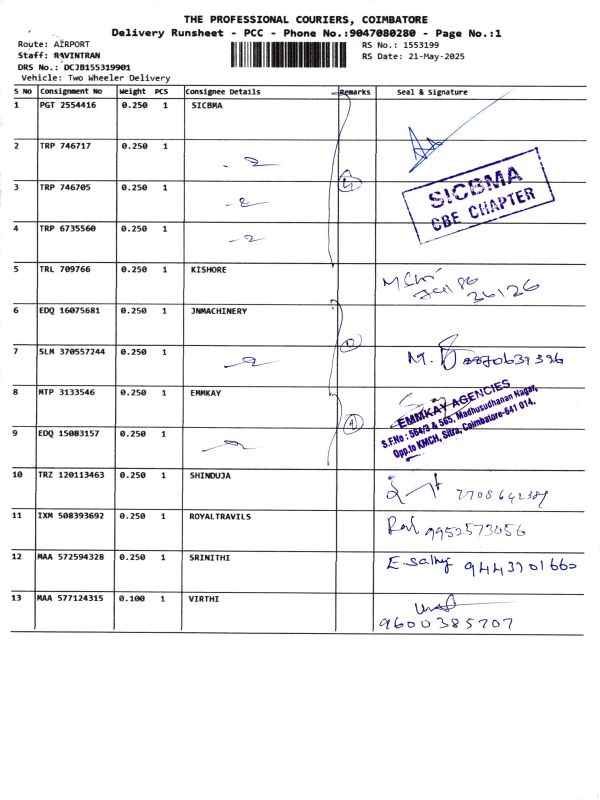 THE PROFESSIONAL COURIERS, COIMBATORE
Delivery Runsheet - PCC - Phone No.:9047080280 - Page No.:1
Route: AIRPORT
RS No.: 1553199
Staff: RAVINTRAN
RS Date: 21-May-2025
DRS No.: DCJB155319901
Vehicle: Two Wheeler Delivery
S No Consignment No Weight PCS Consignee Details Remarks Seal & Signature
1 PGT 2554416 0.250 1 SICBMA
2 TRP 746717 0.250 1
3 TRP 746705 0.250 1
SICBMA
CBE CHAPTER
4 TRP 6735560 0.250 1
5 TRL 709766 0.250 1 KISHORE
6 EDQ 16075681 0.250 1 JNMACHINERY
7 SLM 370557244 0.250 1
8 MTP 3133546 0.250 1 EMMKAY
EMMKAY AGENCIES
S.F.No : 564/3 & 565, Madhusudhanan Nagar,
Opp.to KMCH, Sitra, Coimbatore-641 014.
9 EDQ 15083157 0.250 1
10 TRZ 120113463 0.250 1 SHINDUJA
11 IXM 508393692 0.250 1 ROYALTRAVILS
9952573056
12 MAA 572594328 0.250 1 SRINITHI
13 MAA 577124315 0.100 1 VIRTHI
9600385707